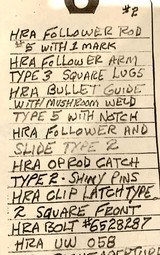 #2
HRA FOLLOWER ROD
#5 WITH 1 MARK
HRA FOLLOWER ARM
TYPE 3 SQUARE LUGS
HRA BULLET GUIDE
WITH MUSHROOM WELD
TYPE 5 WITH NOTCH
HRA FOLLOWER AND
SLIDE TYPE 2
HRA OPROD CATCH
TYPE 2 - SHINY PINS
HRA CLIP LATCH TYPE
2 SQUARE FRONT
HRA BOLT #6528287
HRA UW 05B